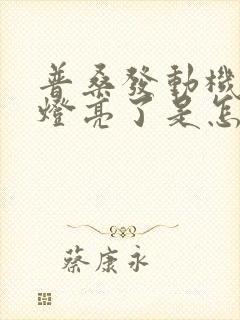 普桑發動機
燈亮了是怎
蔡康永